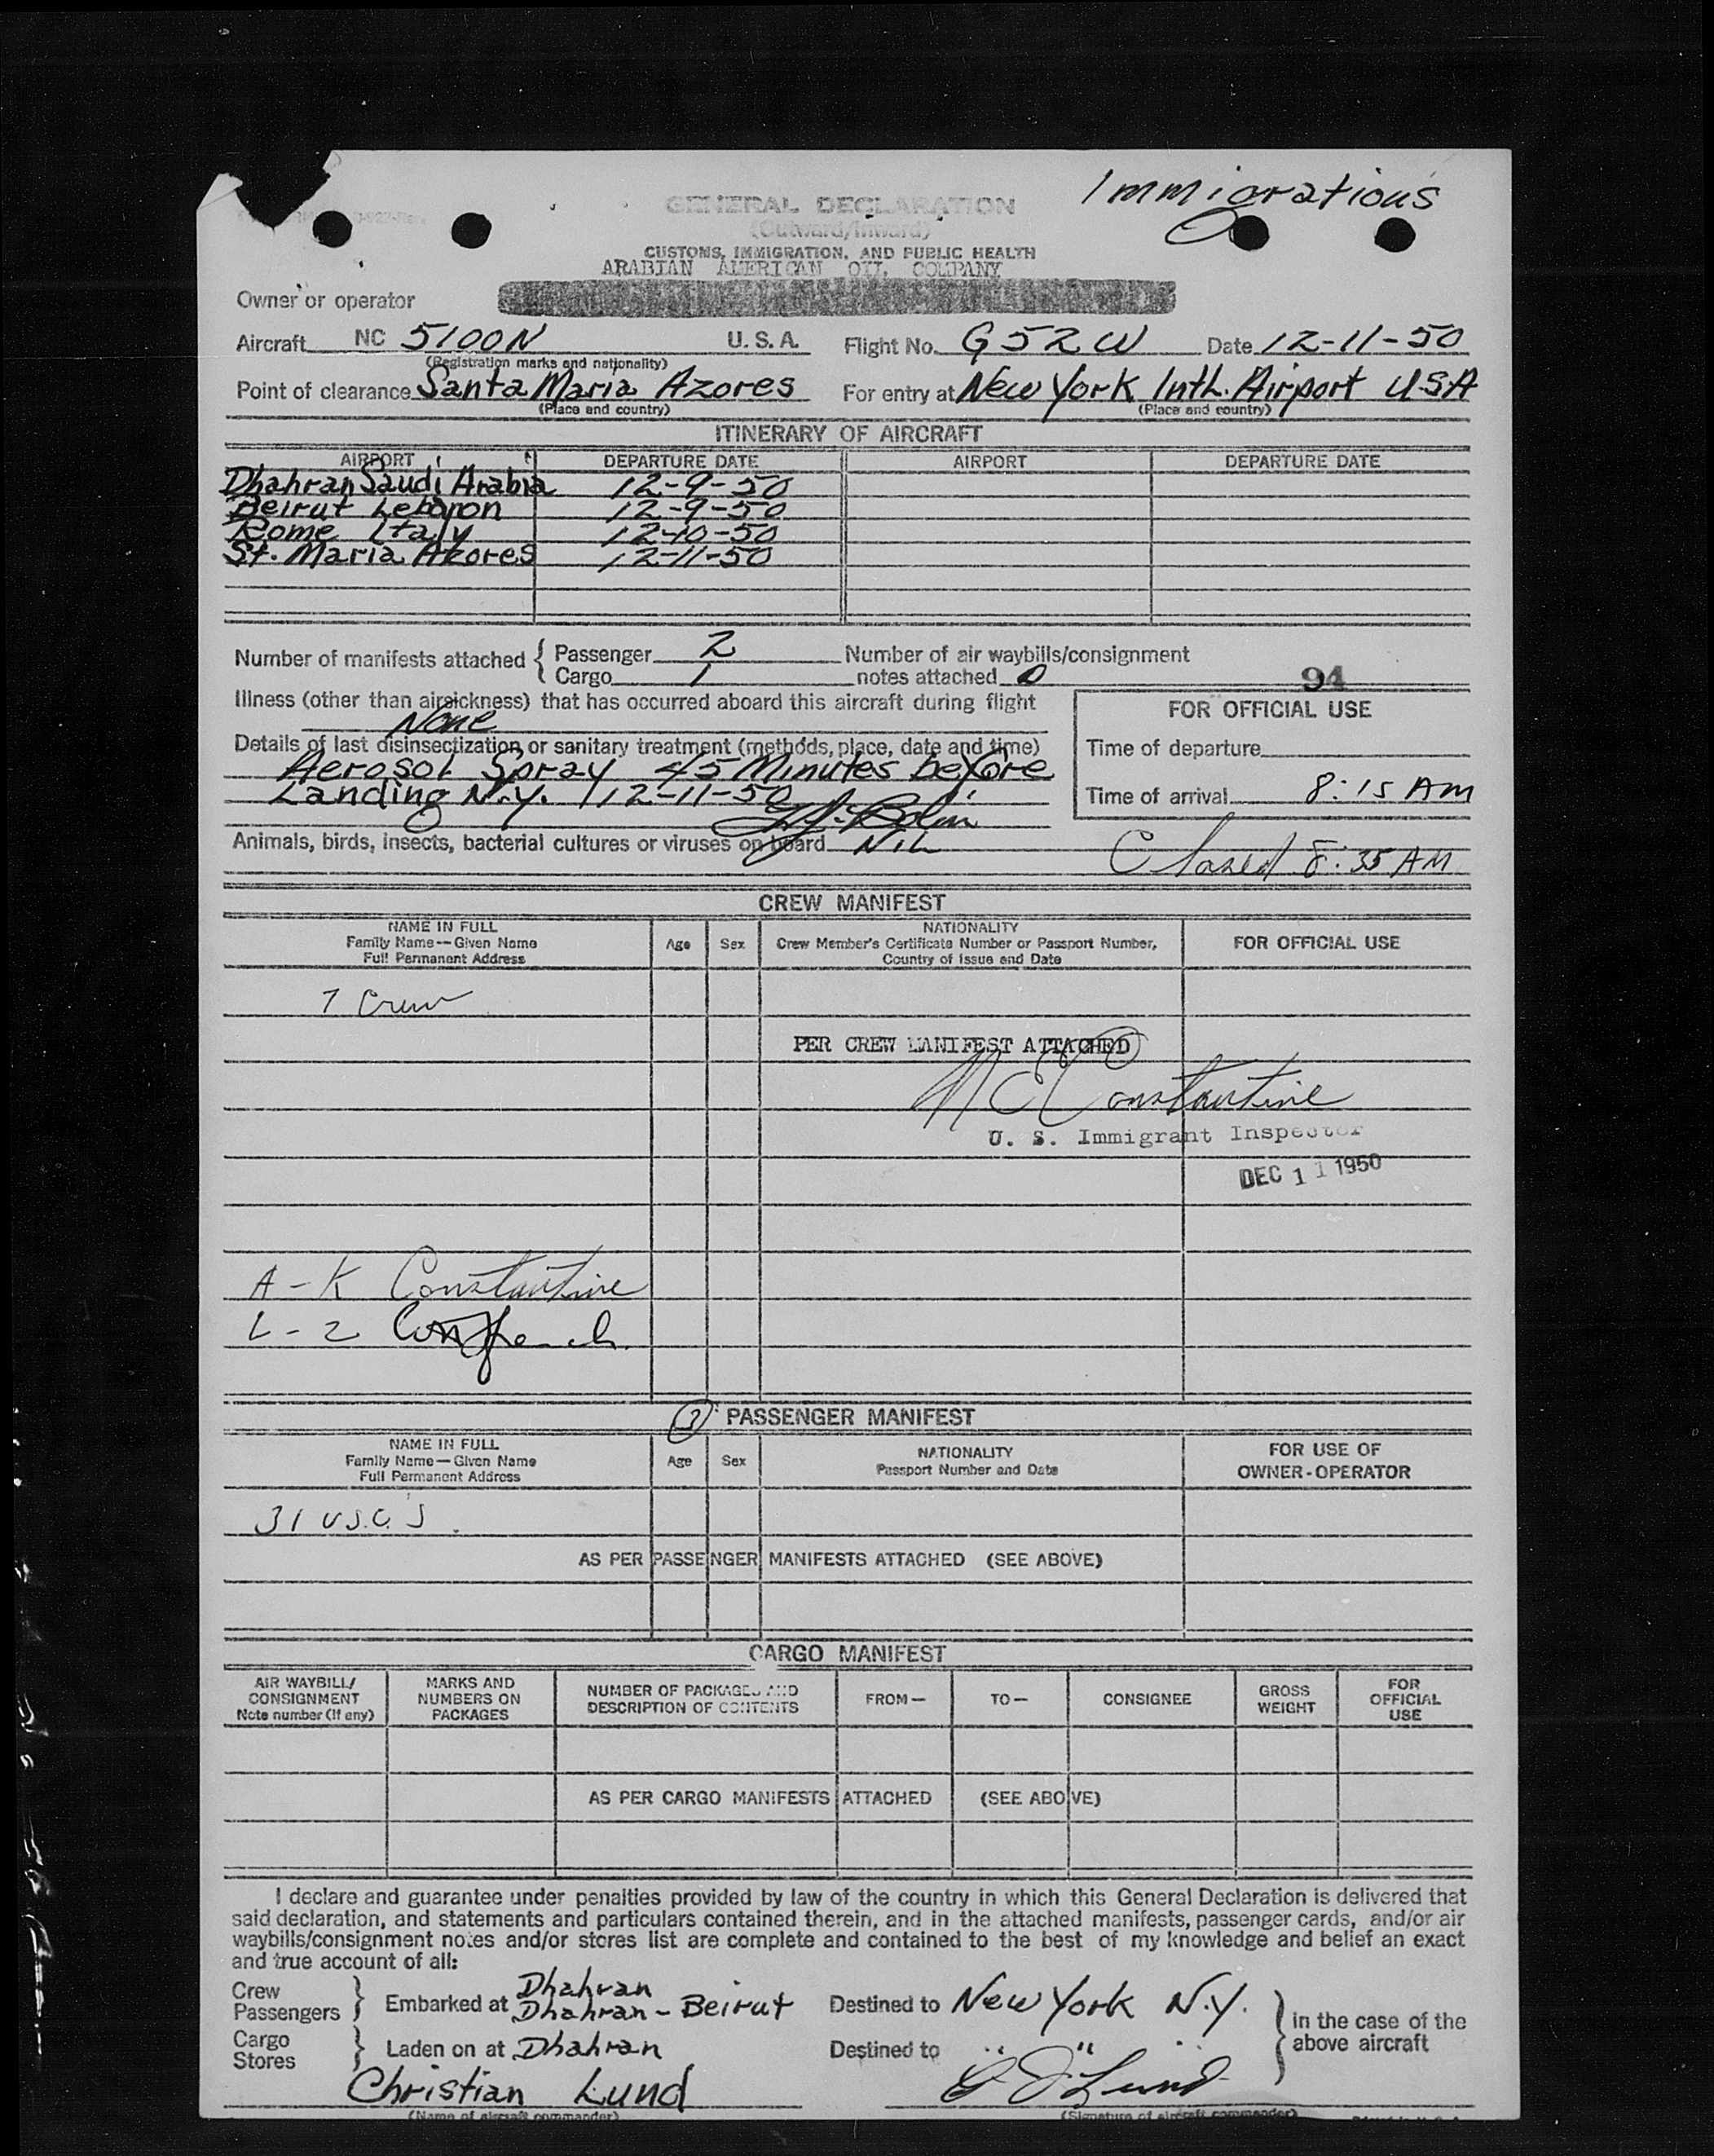 Immigrations
GENERAL DECLARATION
(Outward/Inward)
CUSTOMS, IMMIGRATION, AND PUBLIC HEALTH
ARABIAN AMERICAN OIL COMPANY
Owner or operator
Aircraft NC 5100N U. S. A. Flight No. G52W Date 12-11-50
(Registration marks and nationality)
Point of clearance Santa Maria Azores For entry at New York Intl. Airport U.S.A
(Place and country) (Place and country)
ITINERARY OF AIRCRAFT
AIRPORT DEPARTURE DATE AIRPORT DEPARTURE DATE
Dhahran Saudi Arabia 12-9-50
Beirut Lebanon 12-9-50
Rome Italy 12-10-50
St. Maria Azores 12-11-50
Number of manifests attached { Passenger 2 Number of air waybills/consignment
Cargo 1 notes attached 0
94
Illness (other than airsickness) that has occurred aboard this aircraft during flight
None
FOR OFFICIAL USE
Details of last disinsectization or sanitary treatment (methods, place, date and time)
Time of departure
Aerosol Spray 45 Minutes before
Landing N.Y. 12-11-50
Time of arrival 8:15 AM
Bolin
Animals, birds, insects, bacterial cultures or viruses on board NiL
Closed 8:35 AM
CREW MANIFEST
NAME IN FULL
Family Name—Given Name
Full Permanent Address
Age Sex
NATIONALITY
Crew Member's Certificate Number or Passport Number,
Country of Issue and Date
FOR OFFICIAL USE
7 Crew
PER CREW MANIFEST ATTACHED
Constantine
U. S. Immigrant Inspector
DEC 11 1950
A-K Constantine
L-Z
PASSENGER MANIFEST
NAME IN FULL
Family Name—Given Name
Full Permanent Address
Age Sex
NATIONALITY
Passport Number and Date
FOR USE OF
OWNER-OPERATOR
31 U.S.C.'S
AS PER PASSENGER MANIFESTS ATTACHED (SEE ABOVE)
CARGO MANIFEST
AIR WAYBILL/
CONSIGNMENT
Note number (If any)
MARKS AND
NUMBERS ON
PACKAGES
NUMBER OF PACKAGES AND
DESCRIPTION OF CONTENTS
FROM— TO— CONSIGNEE
GROSS
WEIGHT
FOR
OFFICIAL
USE
AS PER CARGO MANIFESTS ATTACHED (SEE ABOVE)
I declare and guarantee under penalties provided by law of the country in which this General Declaration is delivered that
said declaration, and statements and particulars contained therein, and in the attached manifests, passenger cards, and/or air
waybills/consignment notes and/or stores list are complete and contained to the best of my knowledge and belief an exact
and true account of all:
Crew Dhahran
Passengers } Embarked at Dhahran - Beirut Destined to New York N.Y. } in the case of the
Cargo above aircraft
Stores } Laden on at Dhahran Destined to " "
Christian Lund Lund
(Name of aircraft commander) (Signature of aircraft commander)